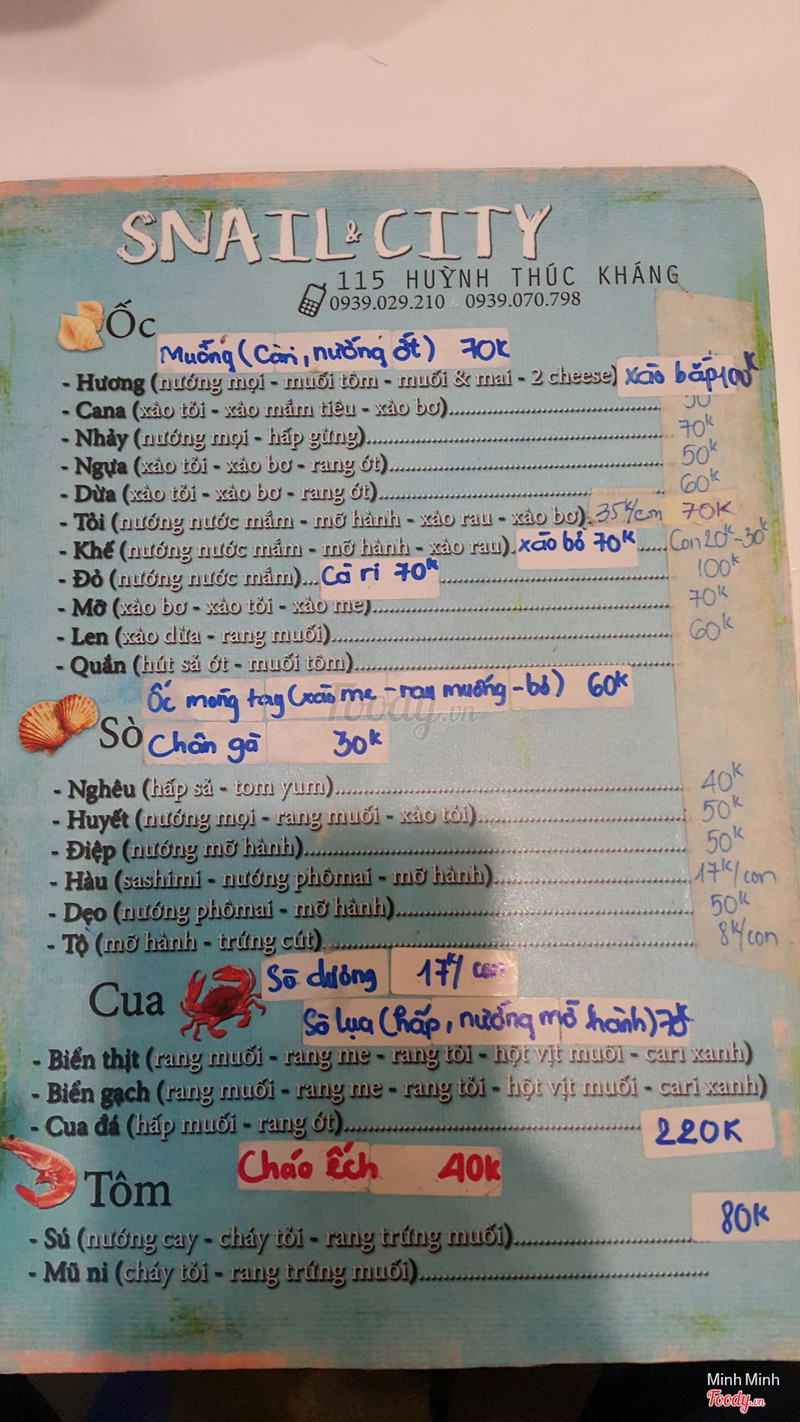 SNAIL & CITY
115 HUỲNH THÚC KHÁNG
0939.029.210 & 0939.070.798
Ốc
Muống (Cari, nướng ớt) 70K
- Hương (nướng mọi - muối tôm - muối & mai - 2 cheese) xào bắp 100K
- Cana (xào tỏi - xào mắm tiêu - xào bơ)
- Nhảy (nướng mọi - hấp gừng) 70K
- Ngựa (xào tỏi - xào bơ - rang ớt) 50K
- Dừa (xào tỏi - xào bơ - rang ớt) 60K
- Tỏi (nướng nước mắm - mỡ hành - xào rau - xào bơ) 35K/con 70K
- Khế (nướng nước mắm - mỡ hành - xào rau) xào bò 70K Con 20K-30K
- Đỏ (nướng nước mắm) Cà ri 70K 100K
- Mỡ (xào bơ - xào tỏi - xào me) 70K
- Len (xào dừa - rang muối) 60K
- Quắn (hút sả ớt - muối tôm)
Ốc móng tay (xào me - rau muống - bò) 60K
Foody.vn
Sò
Chân gà 30K
- Nghêu (hấp sả - tom yum) 40K
- Huyết (nướng mọi - rang muối - xào tỏi) 50K
- Điệp (nướng mỡ hành) 50K
- Hàu (sashimi - nướng phômai - mỡ hành) 17K/con
- Dẹo (nướng phômai - mỡ hành) 50K
- Tộ (mỡ hành - trứng cút) 8K/con
Sò dương 17K/con
Cua
Sò lụa (hấp, nướng mỡ hành) 70K
- Biển thịt (rang muối - rang me - rang tỏi - hột vịt muối - cari xanh)
- Biển gạch (rang muối - rang me - rang tỏi - hột vịt muối - cari xanh)
- Cua đá (hấp muối - rang ớt) 220K
Cháo Ếch 40K
Tôm
- Sú (nướng cay - cháy tỏi - rang trứng muối) 80K
- Mũ ni (cháy tỏi - rang trứng muối)
Minh Minh
Foody.vn